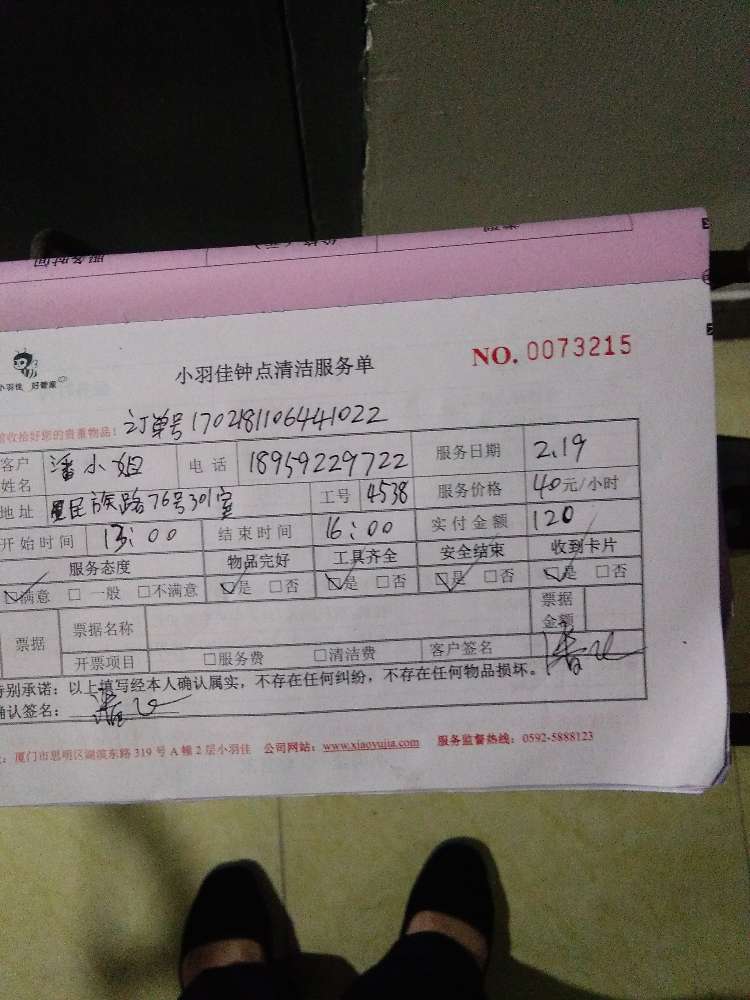 服务时间
小羽佳钟点清洁服务单 NO. 0073215
小羽佳 好管家
收拾好您的贵重物品! 订单号170218110644102​2
客户姓名 潘小姐 电话 18959229722 服务日期 2.19
地址 民族路76号301室 工号 4538 服务价格 40元/小时
开始时间 13:00 结束时间 16:00 实付金额 120
服务态度 物品完好 工具齐全 安全结束 收到卡片
☑满意 □一般 □不满意 ☑是 □否 ☑是 □否 ☑是 □否 ☑是 □否
票据 票据名称 票据金额
开票项目 □服务费 □清洁费 客户签名
特别承诺：以上填写经本人确认属实，不存在任何纠纷，不存在任何物品损坏。
确认签名：
厦门市思明区湖滨东路319号A幢2层小羽佳 公司网站：www.xiaoyujia.com 服务监督热线：0592-5888123